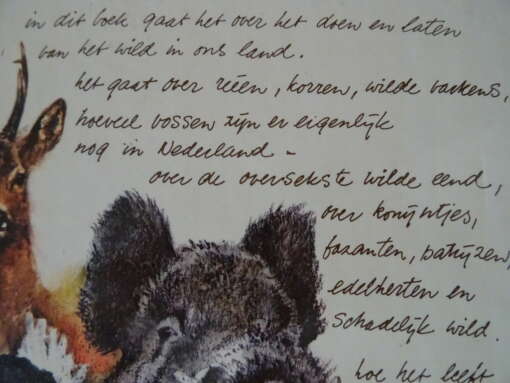 in dit boek gaat het over het doen en laten
van het wild in ons land.
het gaat over reeën, korren, wilde varkens,
hoeveel vossen zijn er eigenlijk
nog in Nederland -
over de oversekste wilde eend,
over konijntjes,
fazanten, patrijzen,
edelherten en
schadelijk wild.
hoe het leeft